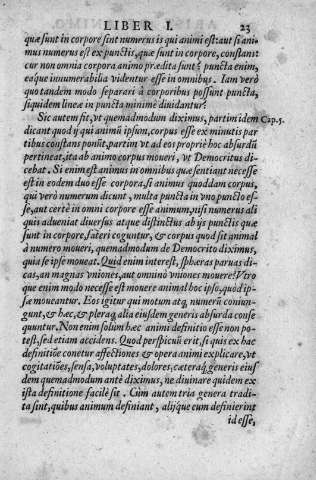 LIBER I. 23
quæ sunt in corpore sint numerus is qui animi est: aut si ani-
mus numerus est ex punctis, quæ sunt in corpore, constans:
cur non omnia corpora animo prædita sunt? puncta enim,
eaque innumerabilia videntur esse in omnibus. Iam verò
quo tandem modo separari à corporibus possunt puncta,
siquidem lineæ in puncta minimè diuidantur?
Sic autem fit, vt quemadmodum diximus, partim idem Cap.5.
dicant quod ij qui animũ ipsum, corpus esse ex minutis par
tibus constans ponũt, partim vt ad eos propriè hoc absurdũ
pertineat, ita ab animo corpus moueri, vt Democritus di-
cebat. Si enim est animus in omnibus quæ sentiant necesse
est in eodem duo esse corpora, si animus quoddam corpus,
qui verò numerum dicunt, multa puncta in vno puncto es-
se, aut certè in omni corpore esse animum, nisi numerus ali
quis adueniat diuersus atque distinctus ab ijs punctis quæ
sunt in corpore, fateri coguntur, & corpus quod sit animal
à numero moueri, quemadmodum de Democrito diximus,
quia se ipse moueat. Quid enim interest, sphæras paruas di-
cat, an magnas vniones, aut omninò vniones mouere? Vtro
que enim modo necesse est mouere animal hoc ipso, quod ip-
sæ moueantur. Eos igitur qui motum atq; numerũ coniun-
gunt, & hæc, & pleraq; alia eiusdem generis absurda conse
quuntur. Non enim solùm hæc animi definitio esse non po-
test, sed etiam accidens. Quod perspicuũ erit, si quis ex hac
definitione conetur affectiones & opera animi explicare, vt
cogitatiões, sensa, voluptates, dolores, cæteraq; generis eius
dem quemadmodum antè diximus, ne diuinare quidem ex
ista definitione facilè sit. Cum autem tria genera tradi-
ta sint, quibus animum definiant, alijque cum definierint
id esse,